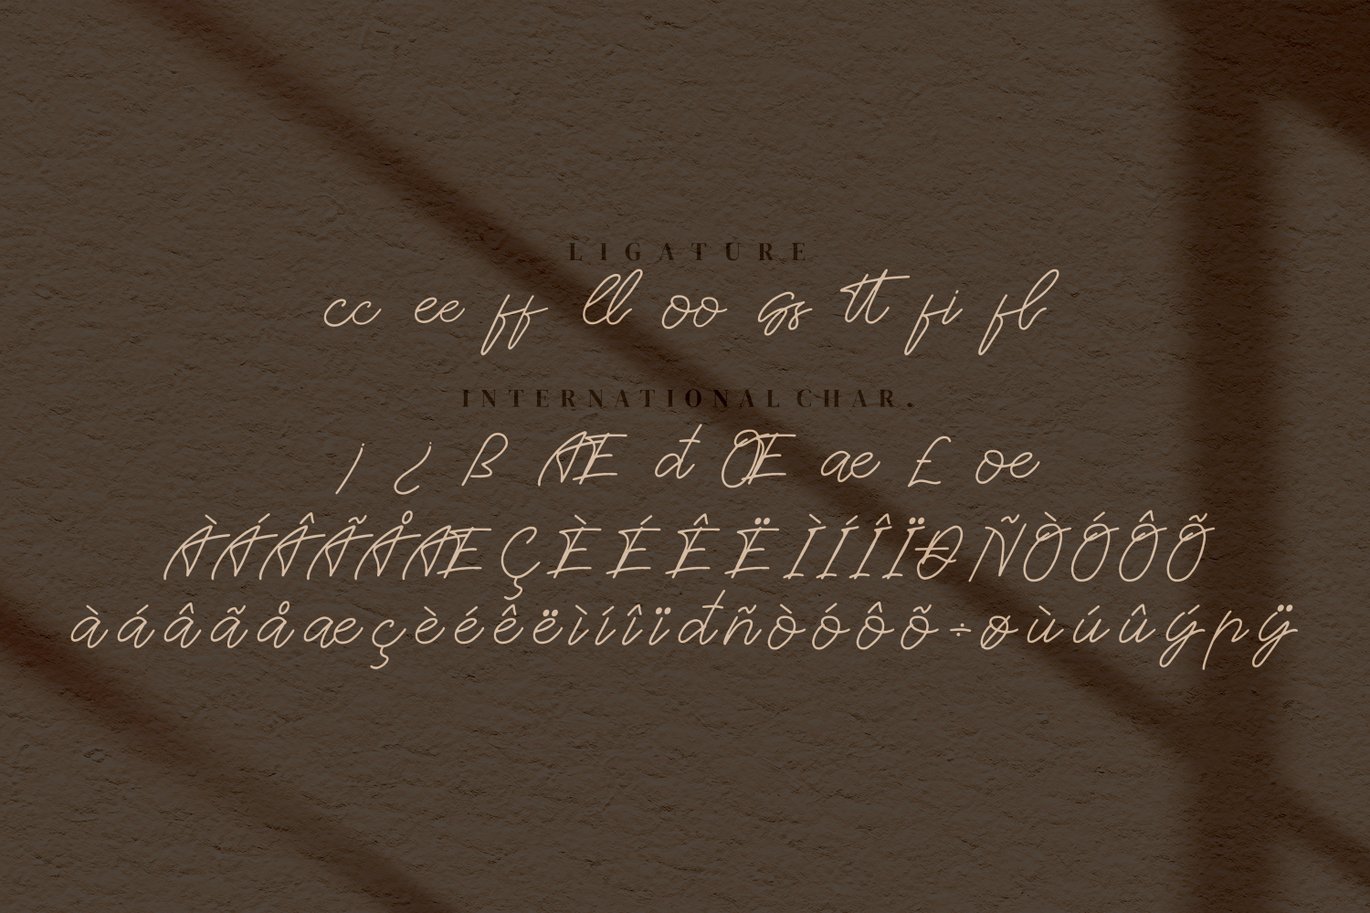 LIGATURE
cc ee ff ll oo ss tt fi fl
INTERNATIONAL CHAR.
¡ ¿ ß Æ đ Œ æ £ œ
ÀÁÂÃÅÆÇÈÉÊËÌÍÎÏÐÑÒÓÔÕ
àáâãåæçèéêëìíîïđñòóôõ÷øùúûýþÿ